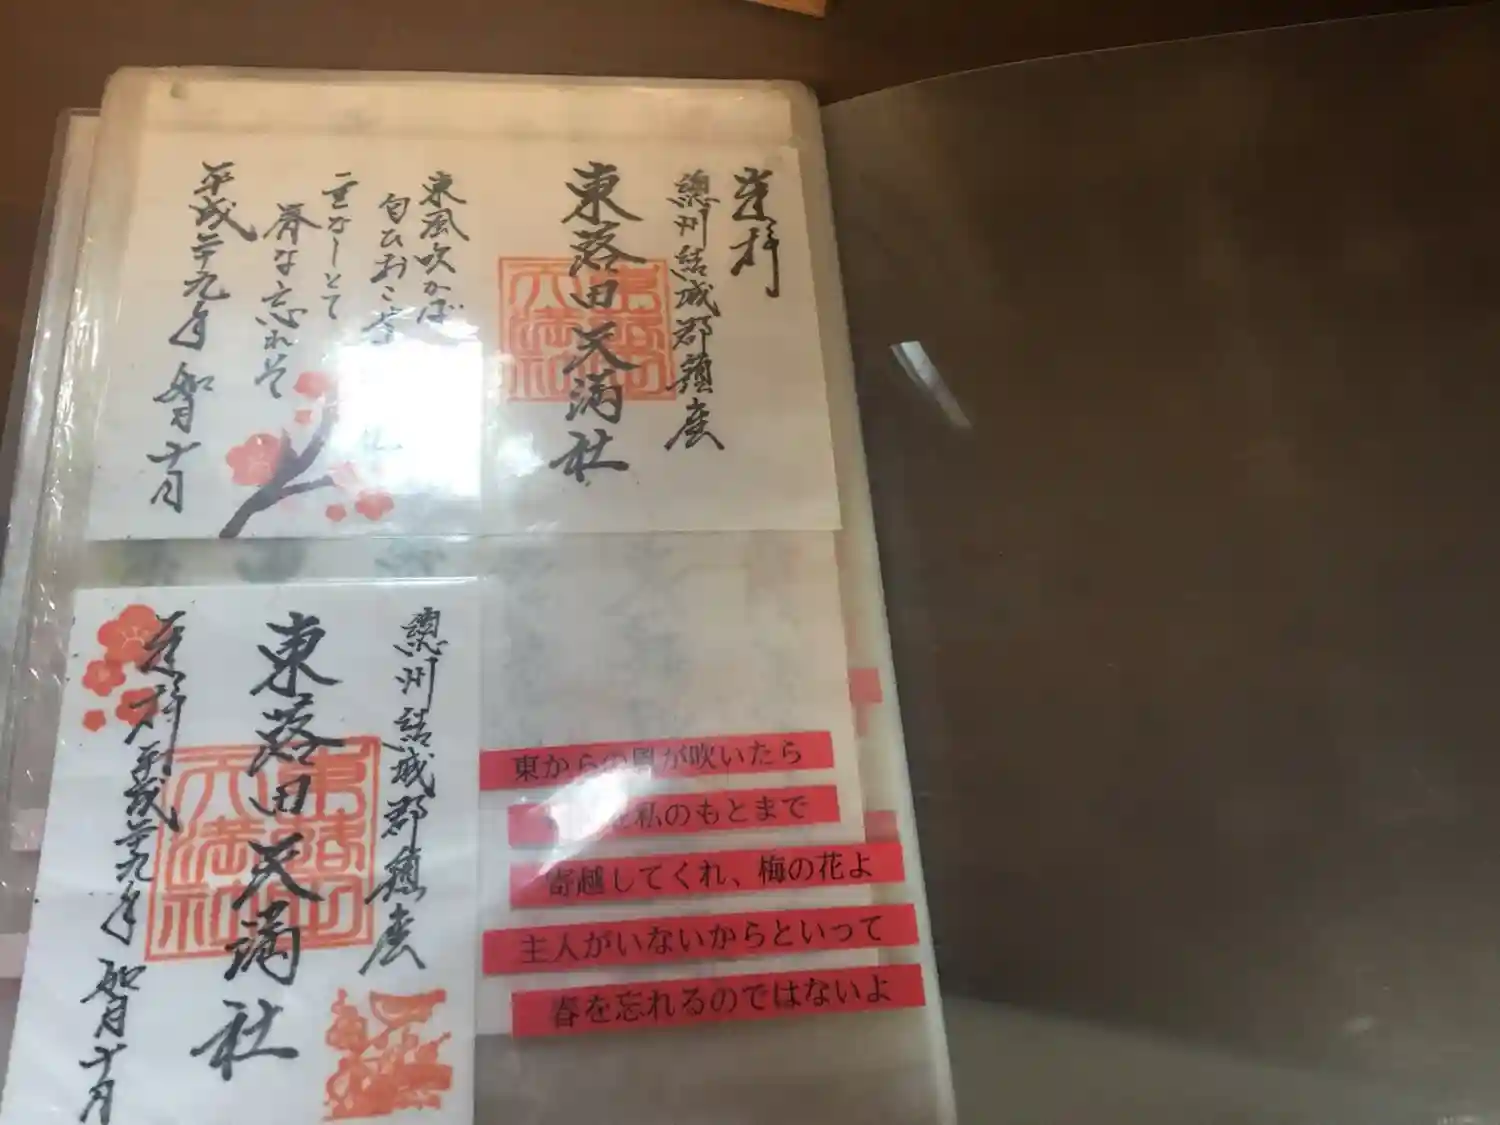 拝
總州結城郡鎮座
東蕗田天満社
東風吹かば
匂ひおこせ
主なしとて
春な忘れそ
平成廿九年 如月十日
總州結城郡鎮座
東蕗田天満社
拝 平成廿九年 如月十日
東蕗田
天満社
東からの風が吹いたら
私のもとまで
寄越してくれ、梅の花よ
主人がいないからといって
春を忘れるのではないよ